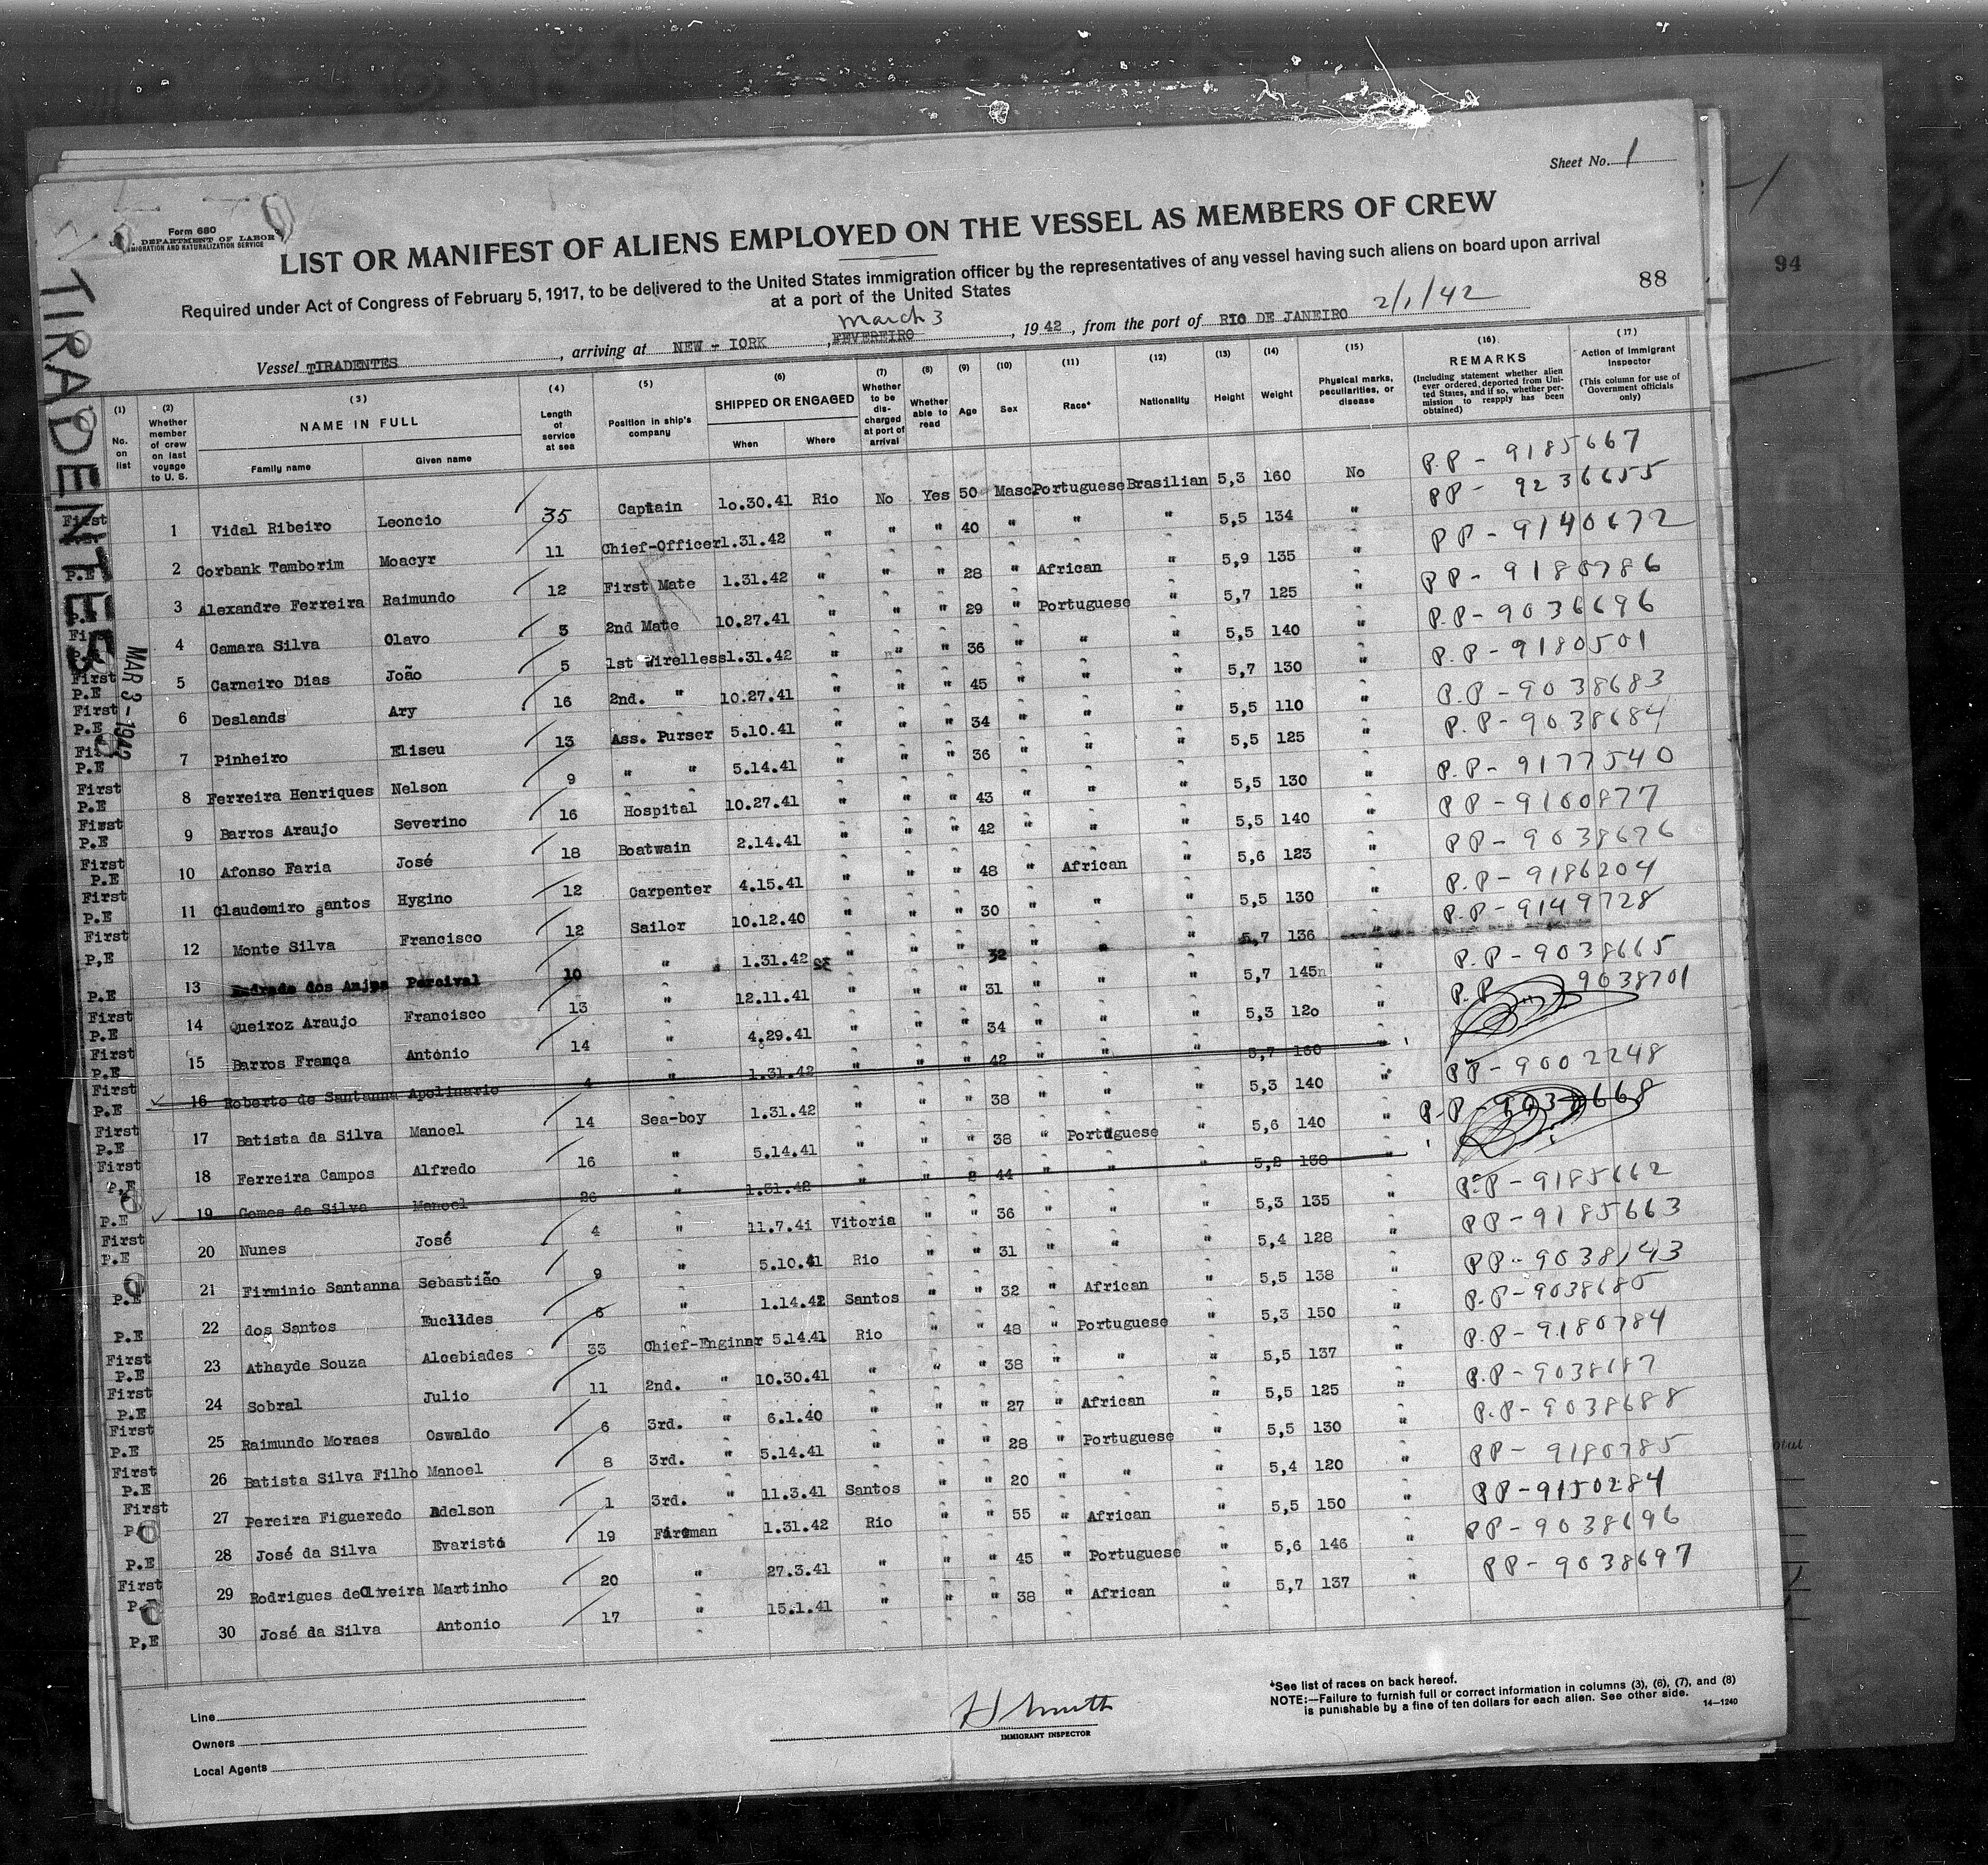 Sheet No. 1
Form 680
DEPARTMENT OF LABOR
IMMIGRATION AND NATURALIZATION SERVICE
LIST OR MANIFEST OF ALIENS EMPLOYED ON THE VESSEL AS MEMBERS OF CREW
Required under Act of Congress of February 5, 1917, to be delivered to the United States immigration officer by the representatives of any vessel having such aliens on board upon arrival
at a port of the United States
88
94
March 3
Vessel TIRADENTES, arriving at NEW - IORK, FEVEREIRO, 1942, from the port of RIO DE JANEIRO 2/1/42
TIRADENTES
MAR 3 - 1942
(1) No. on list
(2) Whether member of crew on last voyage to U. S.
(3) NAME IN FULL Family name Given name
(4) Length of service at sea
(5) Position in ship's company
(6) SHIPPED OR ENGAGED When Where
(7) Whether to be discharged at port of arrival
(8) Whether able to read
(9) Age
(10) Sex
(11) Race*
(12) Nationality
(13) Height
(14) Weight
(15) Physical marks, peculiarities, or disease
(16) REMARKS (Including statement whether alien ever ordered deported from United States, and if so, whether permission to reapply has been obtained)
(17) Action of Immigrant Inspector (This column for use of Government officials only)
First 1 Vidal Ribeiro Leoncio 35 Captain 10.30.41 Rio No Yes 50 Masc Portuguese Brasilian 5,3 160 No P.P - 9185667
P.E 2 Corbank Tamborim Moacyr 11 Chief-Officer 1.31.42 " " " 40 " " " 5,5 134 " PP - 9236655
P.E 3 Alexandre Ferreira Raimundo 12 First Mate 1.31.42 " " " 28 " African " 5,9 135 " PP - 9140672
First P.E 4 Camara Silva Olavo 3 2nd Mate 10.27.41 " " " 29 " Portuguese " 5,7 125 " PP - 9180786
First P.E 5 Carneiro Dias João 5 1st Wirelless 1.31.42 " " " 36 " " " 5,5 140 " P.P - 9036696
First P.E 6 Deslands Ary 16 2nd. " 10.27.41 " " " 45 " " " 5,7 130 " P.P - 9180501
First P.E 7 Pinheiro Eliseu 13 Ass. Purser 5.10.41 " " " 34 " " " 5,5 110 " P.P - 9038683
First P.E 8 Ferreira Henriques Nelson 9 " " 5.14.41 " " " 36 " " " 5,5 125 " P.P - 9038684
First P.E 9 Barros Araujo Severino 16 Hospital 10.27.41 " " " 43 " " " 5,5 130 " P.P - 9177540
First P.E 10 Afonso Faria José 18 Boatwain 2.14.41 " " " 42 " " " 5,5 140 " PP - 9160877
First P.E 11 Claudemiro santos Hygino 12 Carpenter 4.15.41 " " " 48 " African " 5,6 123 " PP - 9038676
First P,E 12 Monte Silva Francisco 12 Sailor 10.12.40 " " " 30 " " " 5,5 130 " P.P - 9186204
P.E 13 Andrade dos Anjos Percival 10 " 1.31.42 " " " 32 " " " 5,7 136 " P.P - 9149728
First P.E 14 Queiroz Araujo Francisco 13 " 12.11.41 " " " 31 " " " 5,7 145 " P.P - 9038665
First P.E 15 Barros França António 14 " 4.29.41 " " " 34 " " " 5,3 120 " P.P 9038701
First P.E 16 Roberto de Santanna Apolinario 4 " 1.31.42 " " " 42 " " " 5,7 160 "
First P.E 17 Batista da Silva Manoel 14 Sea-boy 1.31.42 " " " 38 " " " 5,3 140 " PP - 9002248
First P.E 18 Ferreira Campos Alfredo 16 " 5.14.41 " " " 38 " Portuguese " 5,6 140 " P.P - 9038668
P.E 19 Gomes da Silva Manoel 26 " 1.31.42 " " " 44 " " " 5,2 138 "
First P.E 20 Nunes José 4 " 11.7.41 Vitoria " " 36 " " " 5,3 135 " P.P - 9185662
P.E 21 Firminio Santanna Sebastião 9 " 5.10.41 Rio " " 31 " " " 5,4 128 " PP - 9185663
P.E 22 dos Santos Euclides 6 " 1.14.42 Santos " " 32 " African " 5,5 138 " PP - 9038143
First P.E 23 Athayde Souza Alcebiades 33 Chief-Enginnr 5.14.41 Rio " " 48 " Portuguese " 5,3 150 " P.P - 9038680
First P.E 24 Sobral Julio 11 2nd. " 10.30.41 " " " 38 " " " 5,5 137 " P.P - 9180784
First P.E 25 Raimundo Moraes Oswaldo 6 3rd. " 6.1.40 " " " 27 " African " 5,5 125 " P.P - 9038687
First P.E 26 Batista Silva Filho Manoel 8 3rd. " 5.14.41 " " " 28 " Portuguese " 5,5 130 " P.P - 9038688
First P.E 27 Pereira Figueredo Adelson 1 3rd. " 11.3.41 Santos " " 20 " " " 5,4 120 " PP - 9180785
P.E 28 José da Silva Evaristo 19 Fireman 1.31.42 Rio " " 55 " African " 5,5 150 " PP - 9150284
First P.E 29 Rodrigues deOlveira Martinho 20 " 27.3.41 " " " 45 " Portuguese " 5,6 146 " PP - 9038696
P,E 30 José da Silva Antonio 17 " 15.1.41 " " " 38 " African " 5,7 137 " PP - 9038697
Line
Owners
Local Agents
IMMIGRANT INSPECTOR
*See list of races on back hereof.
NOTE:—Failure to furnish full or correct information in columns (3), (6), (7), and (8)
is punishable by a fine of ten dollars for each alien. See other side.
14—1240